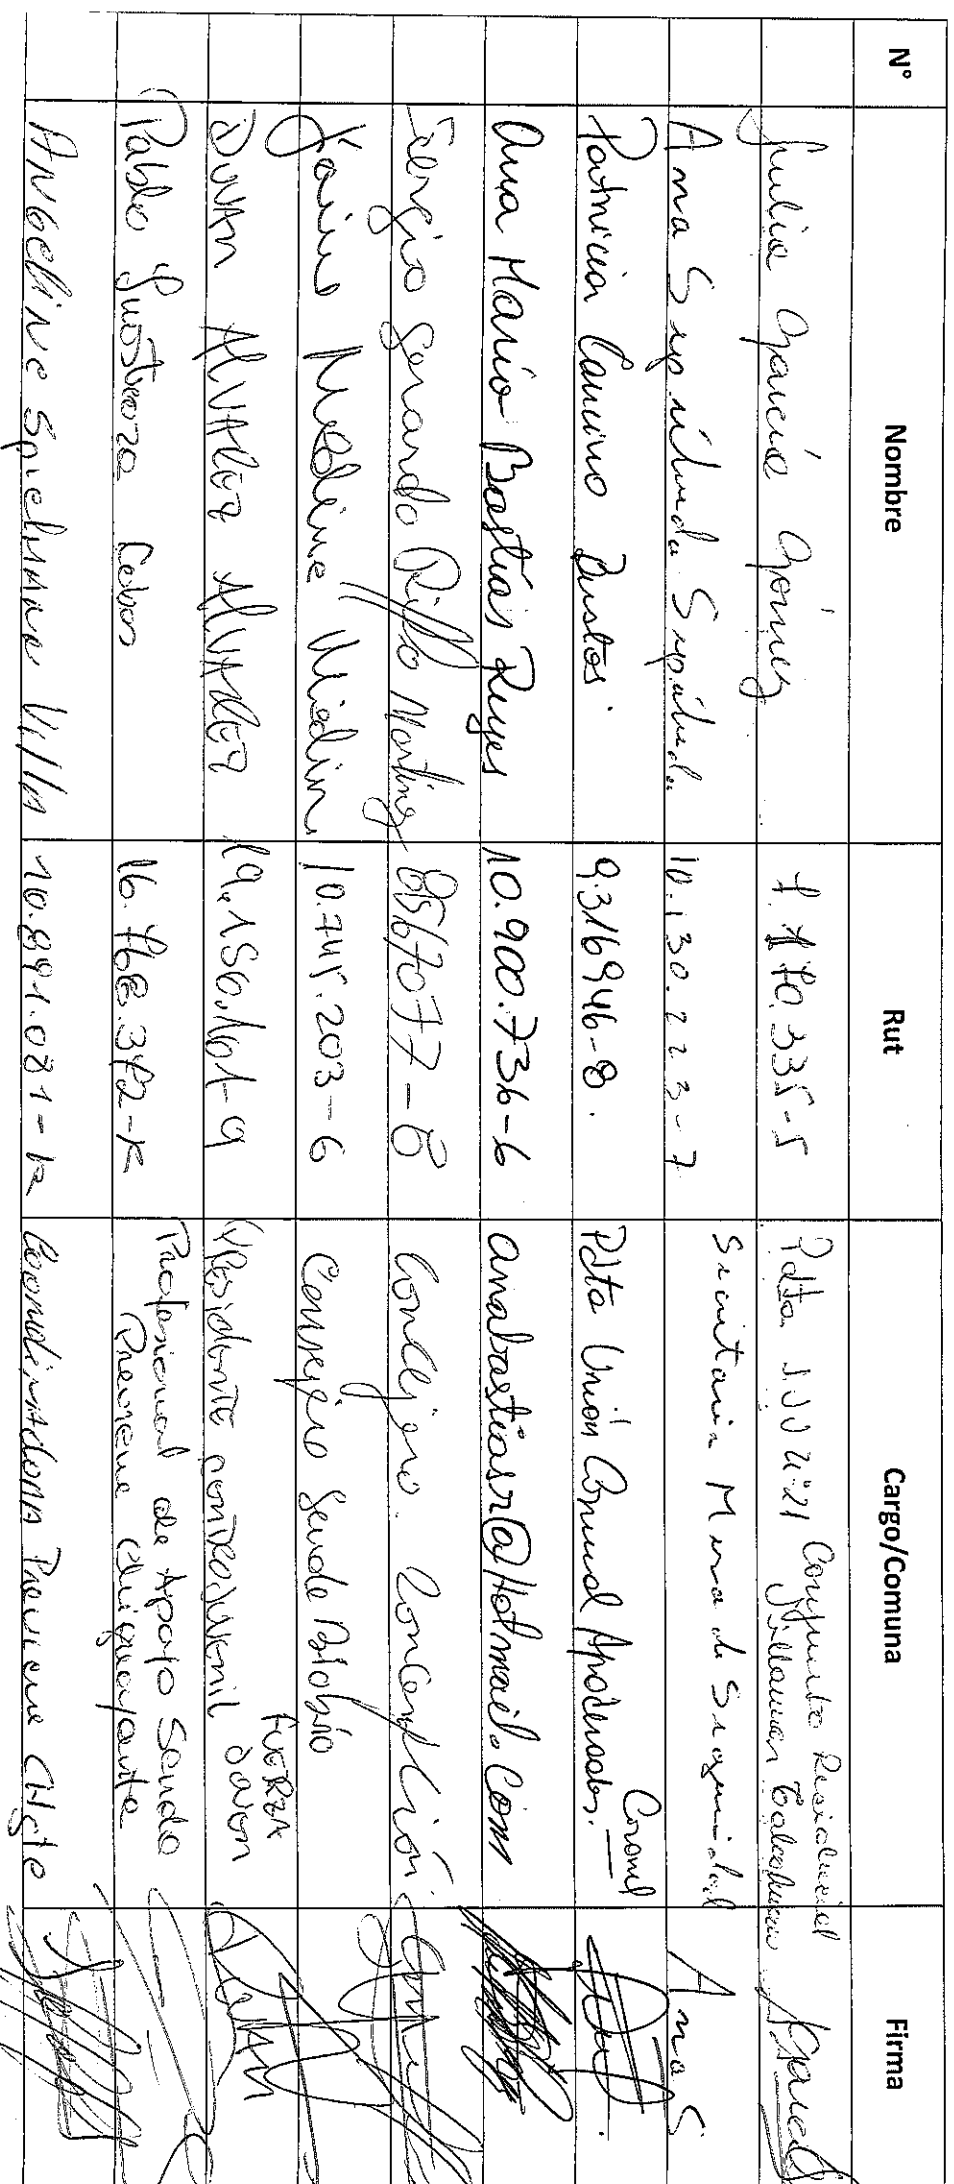 N° Nombre Rut Cargo/Comuna Firma
Julia García Gómez 7.170.335-5 Pdta JJVV 4-21 Conjunto Residencial
Talcahuano
Ana Sepúlveda Sepúlveda 10.130.223-7 Secretaria Mesa de Seguridad Ana S
Patricia Cancino Bustos. 9.316946-8. Pdta Unión Comunal Apoderados.— Coronel
Ana María Bastías Reyes 10.900.736-6 anabastiasr@Hotmail.Com
Sergio Gerardo Riffo Martínez 8567077-8 Concejero. Concepción
Medina 10.745.203-6 Consejero Senda Biobío
DUVAN ALVAREZ ALVAREZ 19.156.161-9 Presidente CENTRO JUVENIL FUERZA JOVEN DUVAN
Pablo Inostroza Cobos 16.768.372-K Profesional de Apoyo Senda
Previene Chiguayante
ANGELLINE Spielmann Villa 10.891.081-K COORDINADORA Previene Chgte